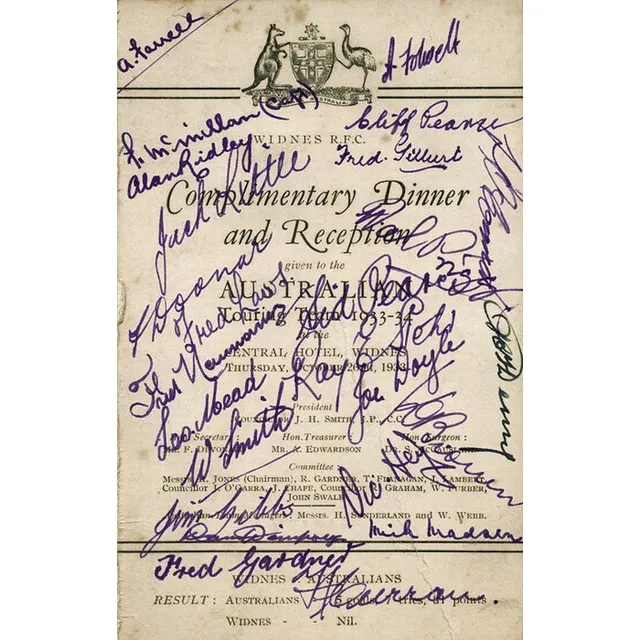 A. Farrell
A Folwell
AUSTRALIA
F. McMillan (Capt)
Cliff Pearce
WIDNES R.F.C.
Alan Ridley
Fred. Gilbert
Jack Little
Complimentary Dinner
and Reception
given to the
AUSTRALIAN
Touring Team 1933-34
at the
CENTRAL HOTEL, WIDNES
THURSDAY, OCTOBER 26th, 1933
Fred Laws
Fred Neumann
Les Mead
Ray
Joe Doyle
W Smith
President
COUNCILLOR J. H. SMITH, J.P., C.C.
Hon. Secretary: Hon. Treasurer: Hon. Surgeon:
MR. F. DIVON MR. A. EDWARDSON DR. S.
Committee:
Messrs. R. JONES (Chairman), R. GARDNER, T. FLANAGAN, J. LAMBERT,
Councillor J. O'GARRA, J. CHAFE, Councillor R. GRAHAM, W. FURBER,
JOHN SWALE
Jim Gibbs
Australian Team Managers: Messrs. H. SUNDERLAND and W. WEBB.
Dan Dempsey
Mick Madsen
Fred Gardner
WIDNES v. AUSTRALIANS
RESULT: AUSTRALIANS - 5 goals, 7 tries, 31 points
WIDNES - - Nil.